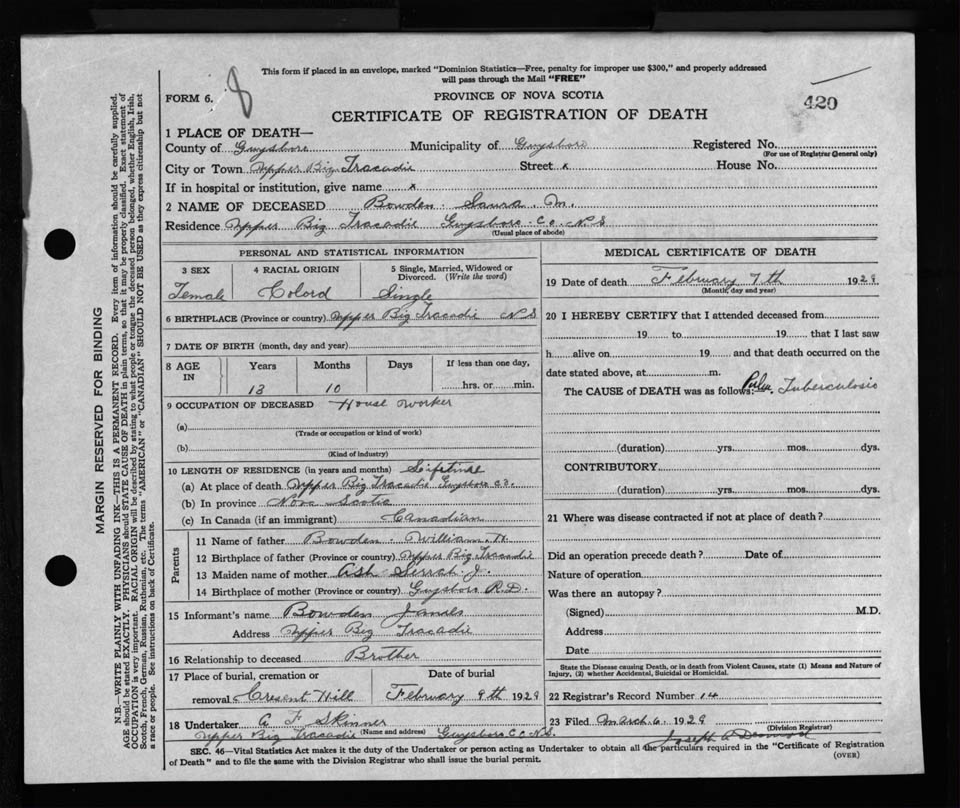 This form if placed in an envelope, marked "Dominion Statistics—Free, penalty for improper use $300," and properly addressed
will pass through the Mail "FREE"
FORM 6. 8
PROVINCE OF NOVA SCOTIA
420
CERTIFICATE OF REGISTRATION OF DEATH
1 PLACE OF DEATH—
County of Guysboro Municipality of Guysboro Registered No.
(For use of Registrar General only)
City or Town Upper Big Tracadie Street x House No.
If in hospital or institution, give name x
2 NAME OF DECEASED Bowden Laura M.
Residence Upper Big Tracadie Guysboro Co N S
(Usual place of abode)
PERSONAL AND STATISTICAL INFORMATION
3 SEX 4 RACIAL ORIGIN 5 Single, Married, Widowed or Divorced. (Write the word)
Female Colord Single
6 BIRTHPLACE (Province or country) Upper Big Tracadie N S
7 DATE OF BIRTH (month, day and year)
8 AGE IN Years Months Days If less than one day,
13 10 hrs. or min.
9 OCCUPATION OF DECEASED House Worker
(a)
(Trade or occupation or kind of work)
(b)
(Kind of industry)
10 LENGTH OF RESIDENCE (in years and months) Lifetime
(a) At place of death Upper Big Tracadie Guysboro Co.
(b) In province Nova Scotia
(c) In Canada (if an immigrant) Canadian
Parents
11 Name of father Bowden William H.
12 Birthplace of father (Province or country) Upper Big Tracadie
13 Maiden name of mother Ash J.
14 Birthplace of mother (Province or country) Guysboro R.D.
15 Informant's name Bowden James
Address Upper Big Tracadie
16 Relationship to deceased Brother
17 Place of burial, cremation or Date of burial
removal Cresent Hill February 9th 1929
18 Undertaker A F Skinner
(Name and address)
Upper Big Tracadie Guysboro Co N.S.
MEDICAL CERTIFICATE OF DEATH
19 Date of death February 7th 1929
(Month, day and year)
20 I HEREBY CERTIFY that I attended deceased from
19 to 19 that I last saw
h alive on 19 and that death occurred on the
date stated above, at m.
The CAUSE of DEATH was as follows: Tuberculosis
(duration) yrs. mos. dys.
CONTRIBUTORY
(duration) yrs. mos. dys.
21 Where was disease contracted if not at place of death?
Did an operation precede death? Date of
Nature of operation
Was there an autopsy?
(Signed) M.D.
Address
Date
State the Disease causing Death, or in death from Violent Causes, state (1) Means and Nature of
Injury, (2) whether Accidental, Suicidal or Homicidal.
22 Registrar's Record Number 14
23 Filed March 6 1929
(Division Registrar)
Joseph A
SEC. 46—Vital Statistics Act makes it the duty of the Undertaker or person acting as Undertaker to obtain all the particulars required in the "Certificate of Registration
of Death" and to file the same with the Division Registrar who shall issue the burial permit.
(OVER)
MARGIN RESERVED FOR BINDING
N.B.—WRITE PLAINLY WITH UNFADING INK—THIS IS A PERMANENT RECORD. Every item of information should be carefully supplied.
AGE should be stated EXACTLY. PHYSICIANS should STATE CAUSE OF DEATH in plain terms, so that it may be properly classified. Exact statement of
OCCUPATION is very important. RACIAL ORIGIN will be described by stating to what people or tongue the deceased person belonged, whether English, Irish,
Scotch, French, German, Russian, Ruthenian, etc. The terms "AMERICAN" or "CANADIAN" SHOULD NOT BE USED as they express citizenship but not
a race or people. See instructions on back of Certificate.